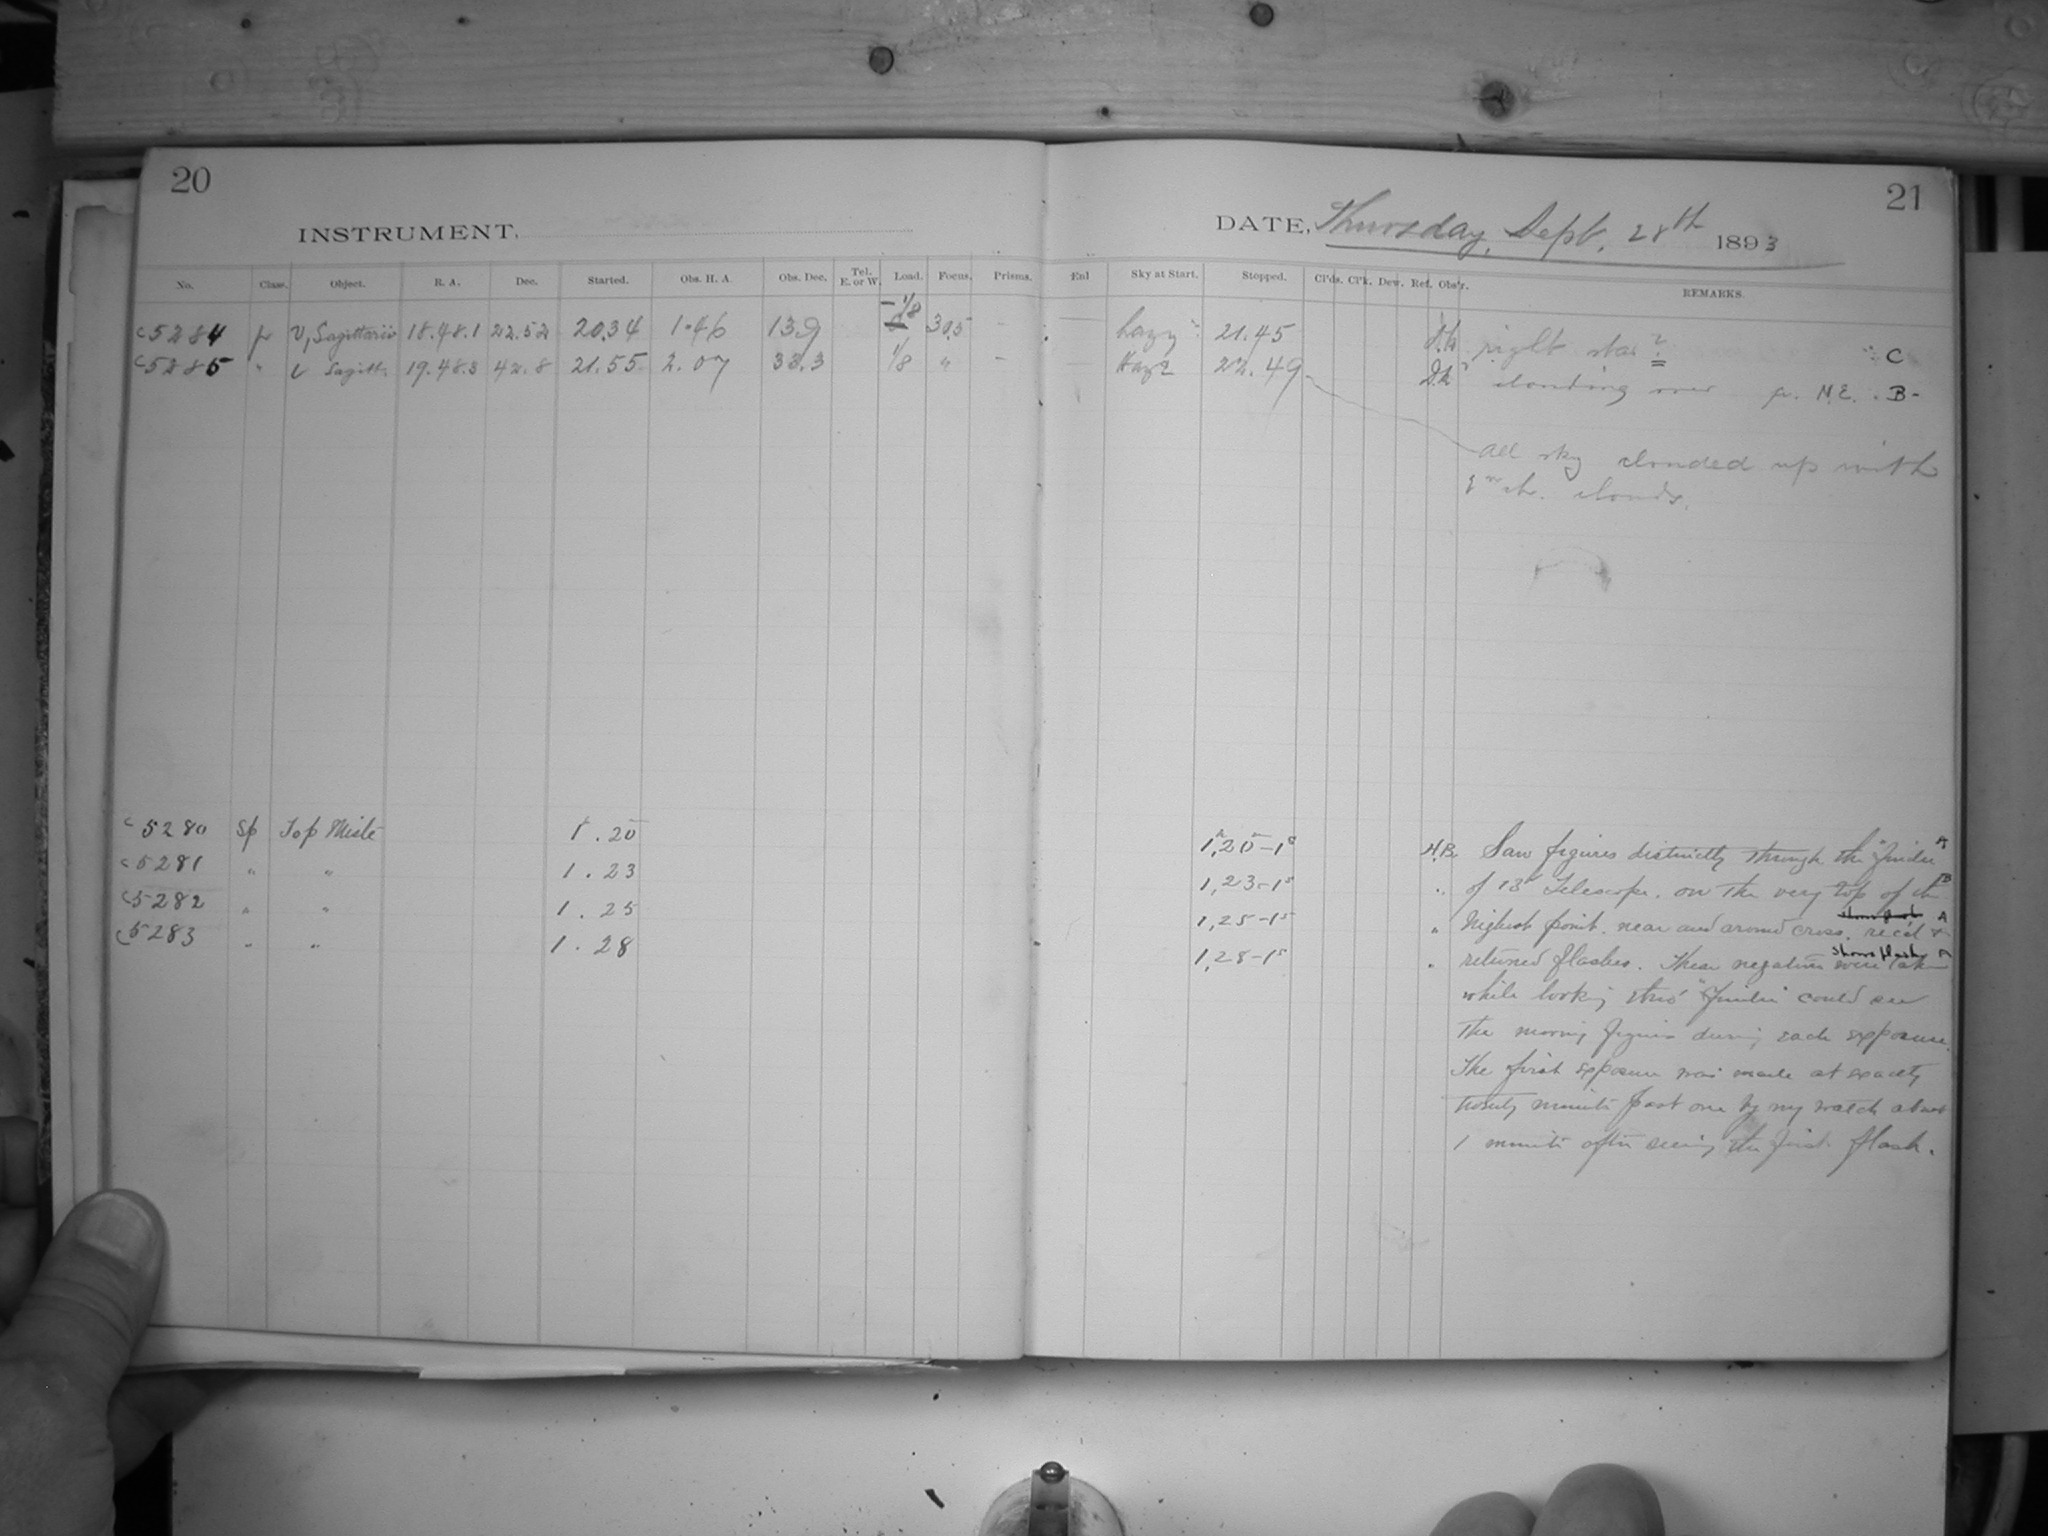 20
21
INSTRUMENT,
DATE, Thursday, Sept. 28th 1893
No. Class. Object. R. A. Dec. Started. Obs. H. A. Obs. Dec. Tel. E. or W. Load. Focus. Prisms. Enl Sky at Start. Stopped. Cl'ds. Cl'k. Dew. Ref. Obs'r. REMARKS.
-1/8
c5284 p ν, Sagittarii 18.48.1 22.52 20.34 1.46 13.9 30.5 - hazy 21.45 right star? C
c5285 " ι Sagitt. 19.48.3 42.8 21.55 2.07 33.3 1/8 " - Haze 22.49 clouding over fr. N.E. B-
All sky clouded up with
clouds.
c5280 Sp Top Misti 1.20 1,20-1s H.B. Saw figures distinctly through the "finder A
c5281 " " 1.23 1,23-1s " of 13" Telescope. on the very top of the B
c5282 " " 1.25 1,25-1s " highest point. near and around cross. rec'd + A
shows flash A
c5283 " " 1.28 1,28-1s " returned flashes. These negatives were taken
while looking thro' "finder" could see
the moving figures during each exposure.
The first exposure was made at exactly
twenty minutes past one by my watch about
1 minute after seeing the first flash.